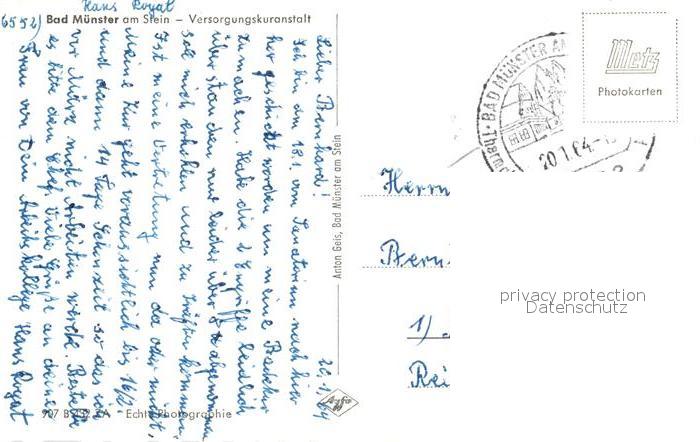 Hans Royal
(6552) Bad Münster am Stein – Versorgungskuranstalt
20.1.64
Lieber Bernhard!
Ich bin am 18.1. vom Sanatorium nach hier
her geschickt worden um meine Badekur
zu machen. Habe die 2 Eingriffe leidlich
überstanden nur leider über 8 abgenommen
soll mich erholen und zu Kräften kommen.
Ist meine Vertretung nun da oder nicht.
Meine Kur geht voraussichtlich bis 16/2
und dann 14 Tage Schonzeit so das ich
vor März nicht arbeiten werde. Bestelle
es bitte dem Chef. Viele Grüße an deine
Frau von Dein Arbeitskollege Hans Royal
Anton Geis, Bad Münster am Stein
907 Echte Photographie
Agfa
BAD MÜNSTER AM
20.1.64
Metz
Photokarten
Herrn
Bern
1)
Rei
privacy protection
Datenschutz